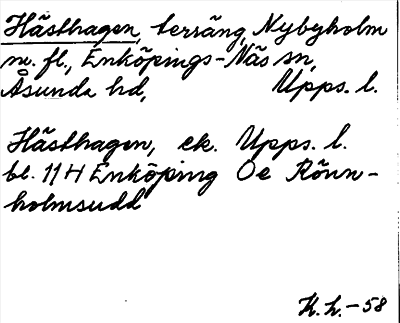 Hästhagen, terräng, Nybyholm
m. fl., Enköpings-Näs sn,
Åsunda hd, Upps. l.
Hästhagen, ek. Upps. l.
bl. 11 H Enköping Öe Rönn-
holmsudd
K. h. - 58